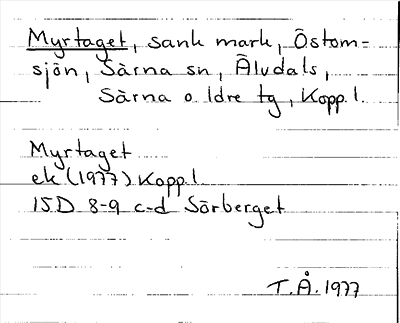 Myrtaget, sank mark, Östom=
sjön, Särna sn, Älvdals,
Särna o Idre tg, Kopp. l.
Myrtaget
ek (1977) Kopp l
15D 8-9 c-d Sörberget
T.Å. 1977